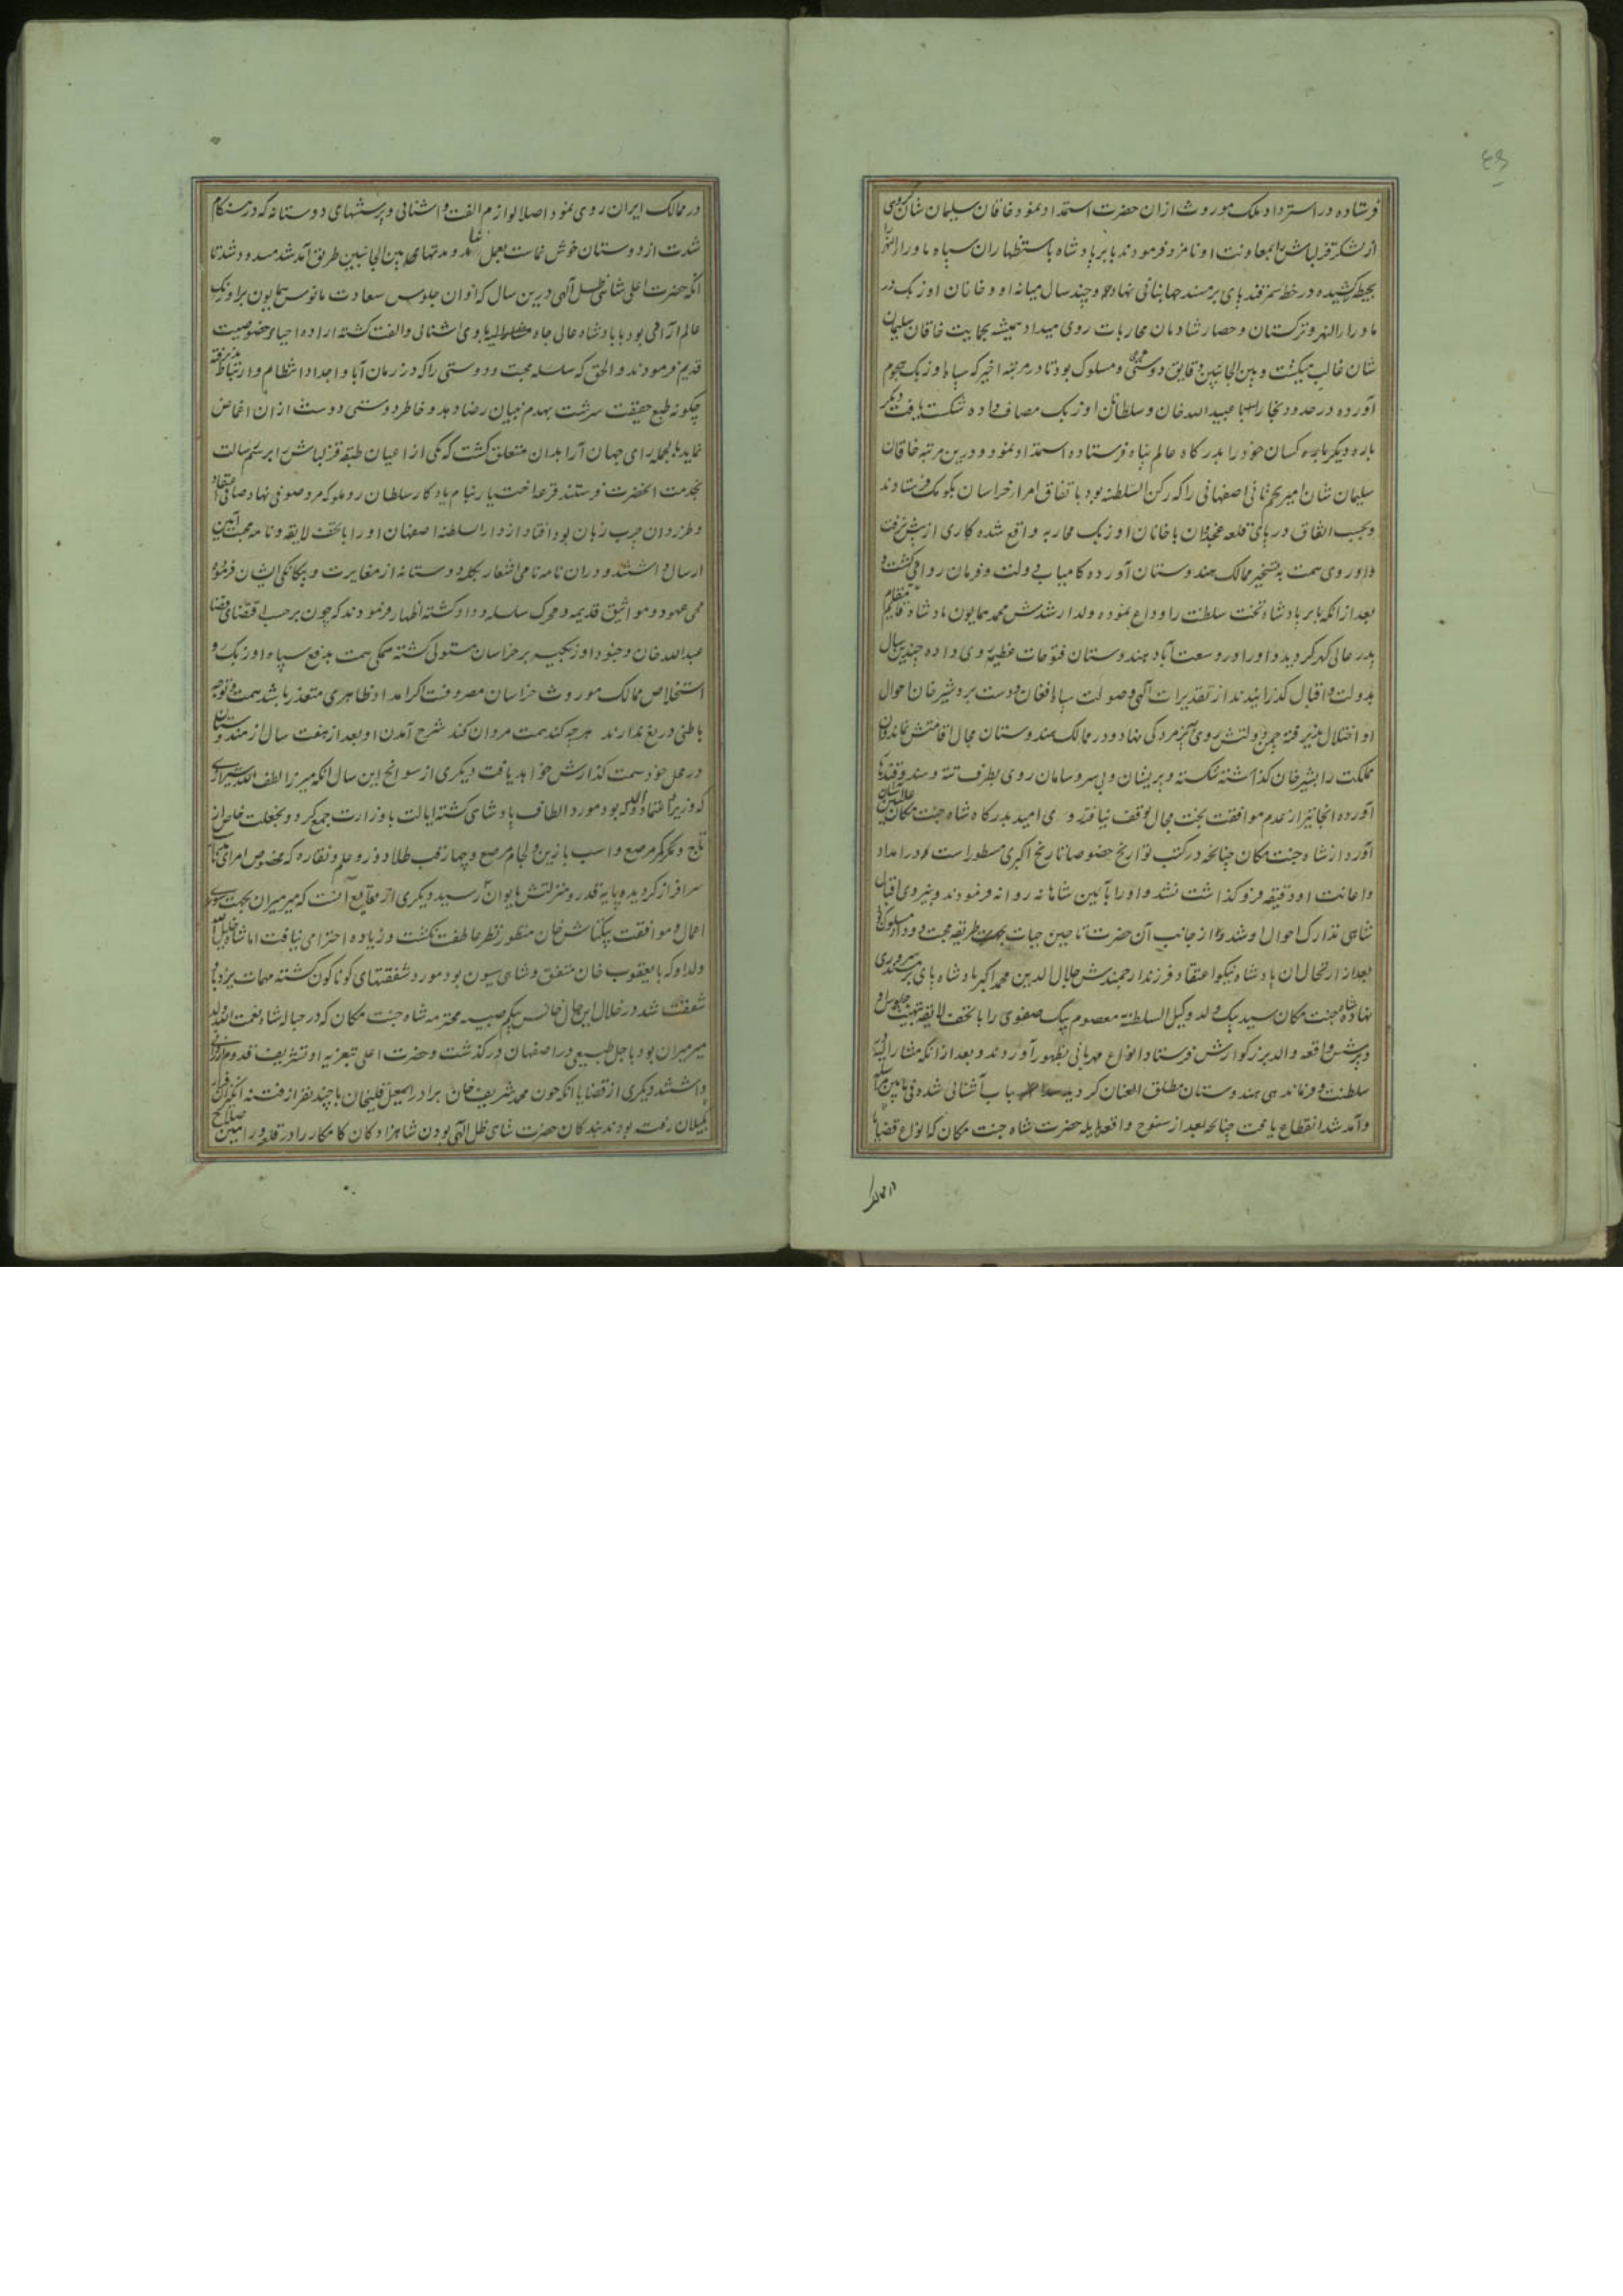 فرستاده در استرداد ملک موروث از ان حضرت استمداد نمود خاقان سلیمان شان
از لشکر قزلباش بمعاونت او نامزد فرمودند بابر پادشاه باستظهار ان سپاه ماوراء النهر
کشیده در خطه سمرقند پای بر مسند جهانبانی نهاد و چند سال میانه او و خانان اوزبک در
ماوراءالنهر و ترکستان و حصار شادمان محاربات روی میداد همیشه بحمایت خاقان سلیمان
شان غالب میکشت و بین الجانبین دقایق دوستی مسلوک بود تا در مرتبه اخیر که سپاه اوزبک هجوم
آورده در حدود بخارا با عبیدالله خان و سلطانان اوزبک مصاف داده شکست یافت دیگر
باره کسان خود را بدرکاه عالم پناه فرستاده استمداد نمود و درین مرتبه خاقان
سلیمان شان امیر نجم ثانی اصفهانی را که رکن السلطنه بود باتفاق امراء خراسان بکومک فرستادند
و بحسب اتفاق در پای قلعه غجدوان با خانان اوزبک محاربه واقع شده کاری از پیش نرفت
و او روی همت به تسخیر ممالک هندوستان آورده کامیاب دولت و فرمان روائی کشت و
بعد از انکه بابر پادشاه تخت سلطنت را وداع نموده ولد ارشدش محمد همایون پادشاه قایم مقام
پدر عالی کهر کردید و او را در وسعت آباد هندوستان فتوحات عظیم روی داده چندین سال
بدولت و اقبال کذرانیدند از تقدیرات آلهی و صولت سپاه افغان و دست برد شیر خان احوال
او اختلال پذیرفته چمن دولتش روی به پژمردکی نهاد و در ممالک هندوستان مجال اقامتش نماند
مملکت را بشیر خان کذاشته شکسته و پریشان و بی سر و سامان روی بطرف تته و سند و قندهار
آورده انجا نیز از عدم موافقت بخت مجال توقف نیافته روی امید بدرکاه شاه جنت مکان
آورد از شاه جنت مکان چنانچه در کتب تواریخ خصوصا تاریخ اکبری مسطور است در امداد
و اعانت او دقیقه فرو کذاشت نشد و او را بآئین شاهانه روانه فرمودند و به نیروی اقبال
شاهی تدارک احوال او شد و از جانب آن حضرت تا حین حیات طریقه محبت و وداد مسلوک
بعد از ارتحال ان پادشاه نیکو اعتقاد فرزند ارجمندش جلال الدین محمد اکبر پادشاه پای بر سریر سروری
نهاد شاه جنت مکان سید بیک ولد وکیل السلطنه معصوم بیک صفوی را با تحف لایقه تهنیت جلوس او
و پرسش واقعه والد بزرکوارش فرستاد انواع مهربانی بظهور آوردند و بعد از انکه مشار الیه
سلطنت و فرماندهی هندوستان مطلق العنان کردید باب آشنائی شده فی مابین
و آمد شد انقطاع یافت چنانچه بعد از سنوح واقعه هایله حضرت شاه جنت مکان که انواع قضایا
در ممالک
در ممالک ایران روی نمود اصلا لوازم الفت و اشنائی و پرسشهای دوستانه که در هنکام
شدت از دوستان خوش نماست بعمل نیامد و مدتهای بین الجانبین طریق آمد شد مسدود شد تا
انکه حضرت اعلی شاهی ظل آلهی درین سال که اوان جلوس سعادت مانوس همایون بر اورنک
عالم آرائی بود با پادشاه عالی جاه مشار الیه بادی اشنائی و الفت کشته اراده احیاء خصوصیت
قدیم فرمودند و الحق که سلسله محبت و دوستی را که در زمان آبا و اجداد انتظام و ارتباط پذیرفته
چکونه طبع حقیقت سرشت بهدم بنیان رضا دهد و خاطر دوستی دوست از ان اغماض
نماید بالجمله رای جهان آرا بدان متعلق کشت که یکی از اعیان طبقه قزلباش را برسم رسالت
بخدمت انحضرت فرستند قرعه اختیار بنام یادکار سلطان روملو که مرد صوفی نهاد صافی اعتقاد
و طرز دان چرب زبان بود افتاد از دار السلطنه اصفهان او را با تحف لایقه و نامه محبت آیین
ارسال داشتند و در ان نامه نامی اشعار بکله دوستانه از مغایرت و بیکانکی ایشان فرموده
محی عهود و مواثیق قدیمه و محرک سلسله وداد کشته اظهار فرمودند که چون بر حسب اقتضای قضا
عبدالله خان و جنود اوزبکیه بر خراسان مستولی کشته همکی همت بدفع سپاه اوزبک و
استخلاص ممالک موروث خراسان مصروفست اکر امداد ظاهری متعذر باشد همت و توجه
باطنی دریغ ندارند هر چه کند همت مردان کند شرح آمدن او بعد از هفت سال از هندوستان
در محل خود سمت کذارش خواهد یافت دیکری از سوانح این سال انکه میرزا لطف الله شیرازی
که وزیر اعتماد الدوله بود مورد الطاف پادشاهی کشته ایالت با وزارت جمع کرد و بخلعت خاص از
تاج و کمر مرصع و اسب با زین و لجام مرصع و چهار قب طلادوز و علم و نقاره که مخصوص امرای
سرافراز کردیده پایه قدر و منزلتش بایوان رسید و دیکری از وقایع آنست که میر میران بجهت سوء
اعمال و موافقت بیکتاش خان منظور نظر عاطفت نکشت و زیاده احترامی نیافت اما شاه خلیل الله
ولد او که با یعقوب خان متفق و شاهی سیون بود مورد شفقتهای کوناکون کشته مهمات یزد باو
شفقت شد در خلال این حال خانش بیکم صبیه محترمه شاه جنت مکان که در حباله شاه نعمت الله ولد
میر میران بود باجل طبیعی در اصفهان درکذشت و حضرت اعلی بتعزیه او تشریف قدوم ارزانی
داشتند دیکری از قضایا انکه چون محمد شریف خان برادر اسمعیل قلیخان با چند نفر از فتنه انکیزان فرار
بکیلان رفته بودند بندکان حضرت شاهی ظل آلهی بودن شاهزادکان کامکار را در قلعه ورامین صلاح